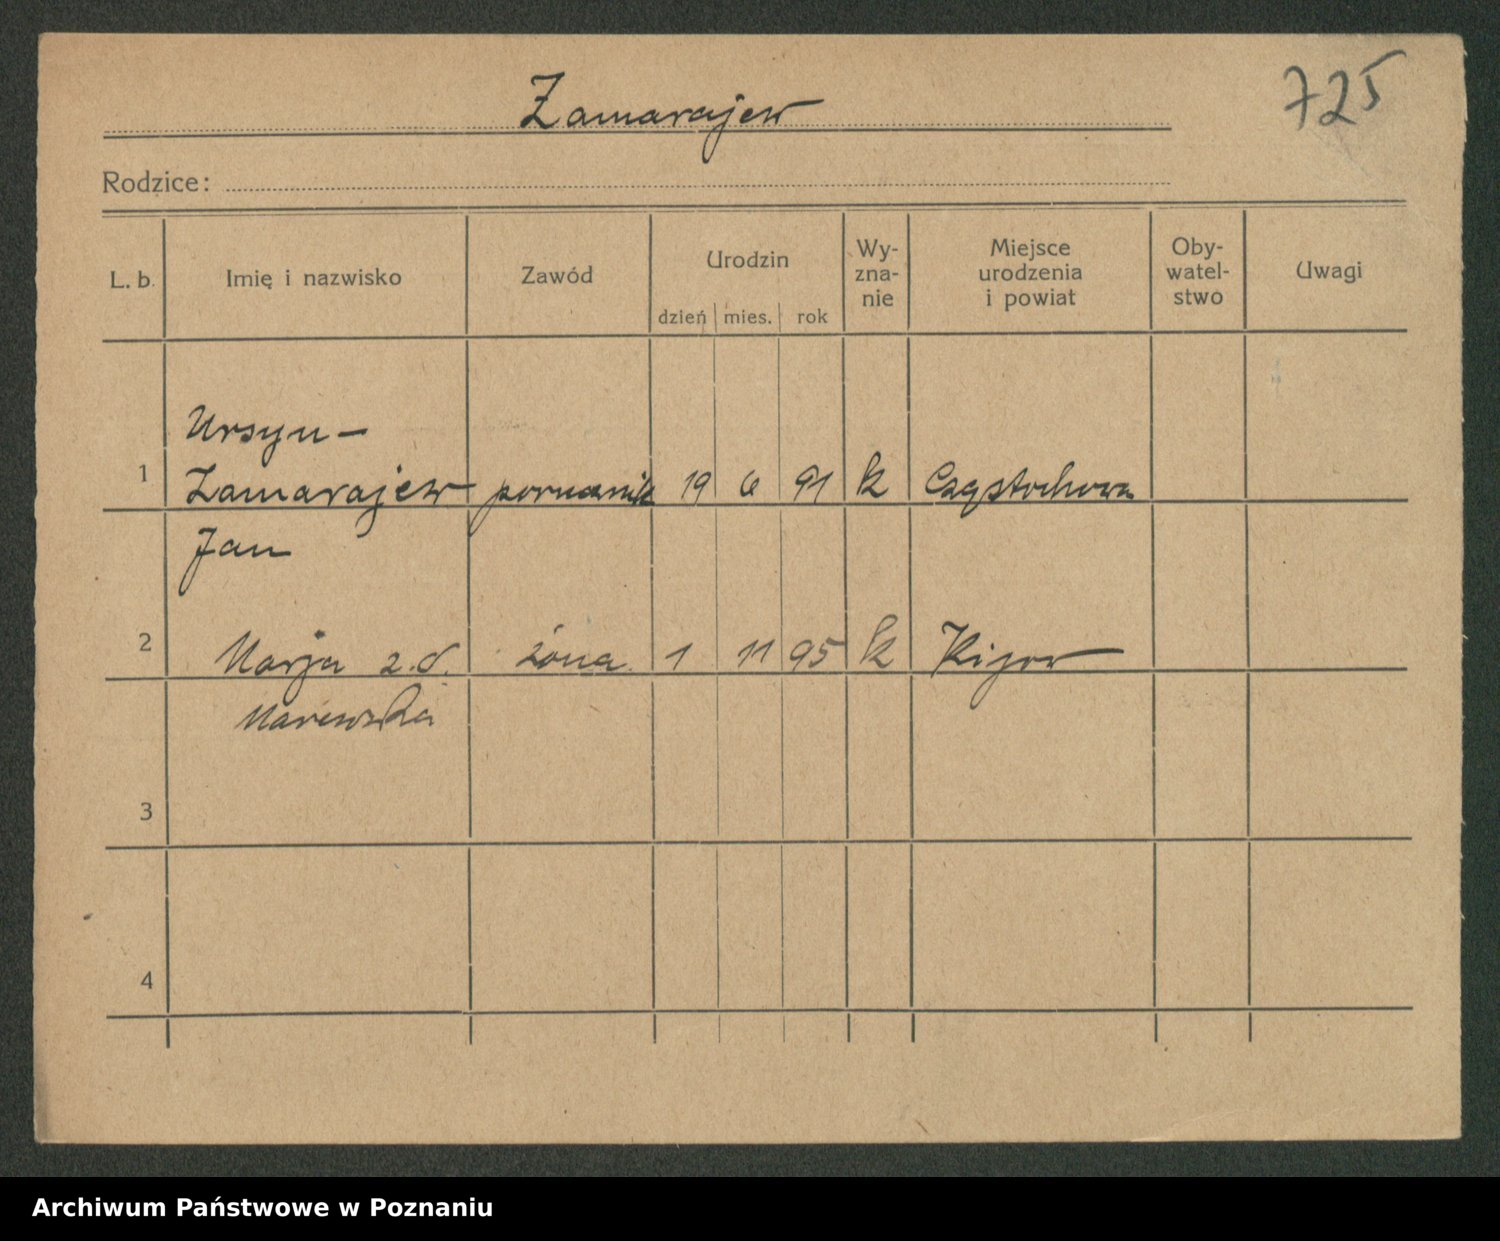 Zamarajew
725
Rodzice:
L. b.
Imię i nazwisko
Zawód
Urodzin
dzień mies. rok
Wy-
zna-
nie
Miejsce
urodzenia
i powiat
Oby-
watel-
stwo
Uwagi
Ursyn-
1 Zamarajew porucznik 19 6 91 k Częstochowa
Jan
2 Marja z.d. żona 1 11 95 k Kijow
3
4
Archiwum Państwowe w Poznaniu